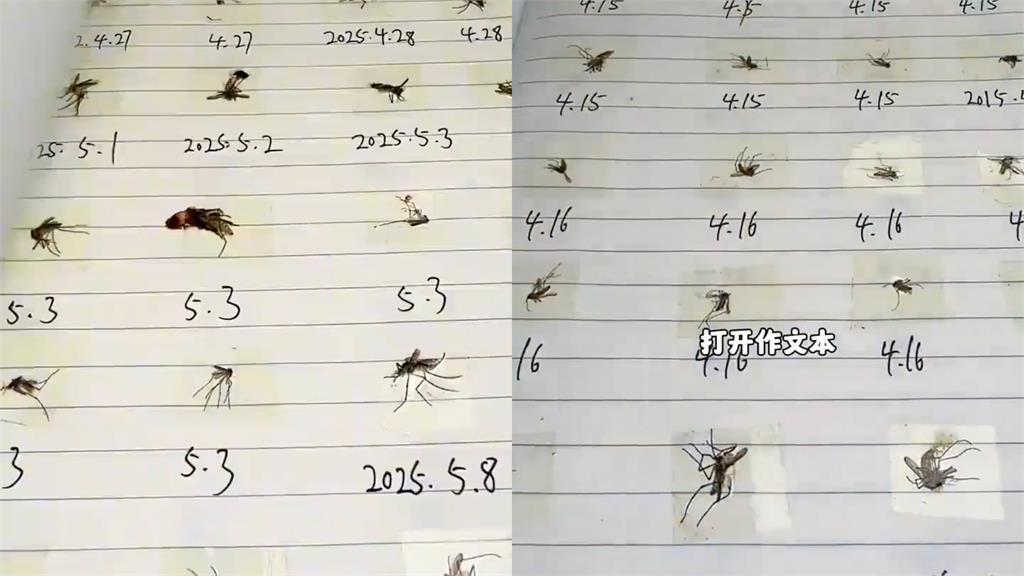 2.4.27 4.27 2025.4.28 4.28
25.5.1 2025.5.2 2025.5.3
5.3 5.3 5.3
3 5.3 2025.5.8
4.15 4.15 4.15 4.15
4.15 4.15 4.15 2015.4
4.16 4.16 4.16 4
打开作文本
16 4.16 4.16